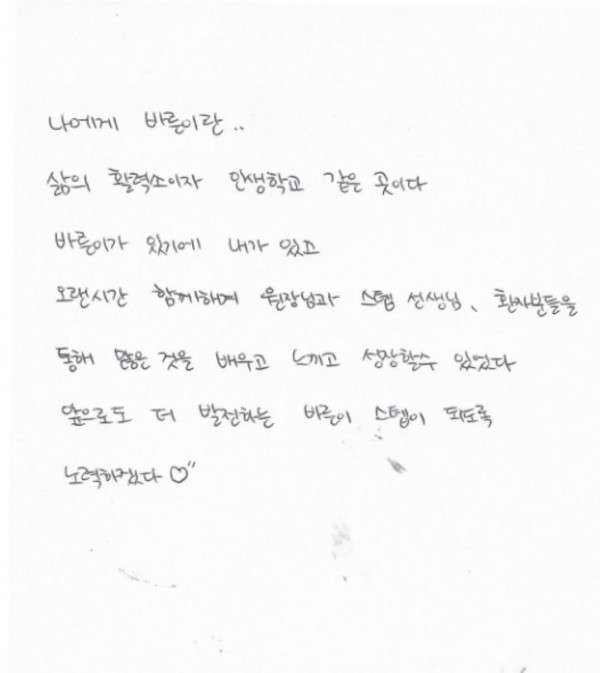 나에게 바른이란..
삶의 활력소이자 인생학교 같은 곳이다
바른이가 있기에 내가 있고
오랜시간 함께하며 원장님과 스텝 선생님, 환자분들을
통해 많은 것을 배우고 느끼고 성장할수 있었다
앞으로도 더 발전하는 바른이 스텝이 되도록
노력하겠다 ♡"